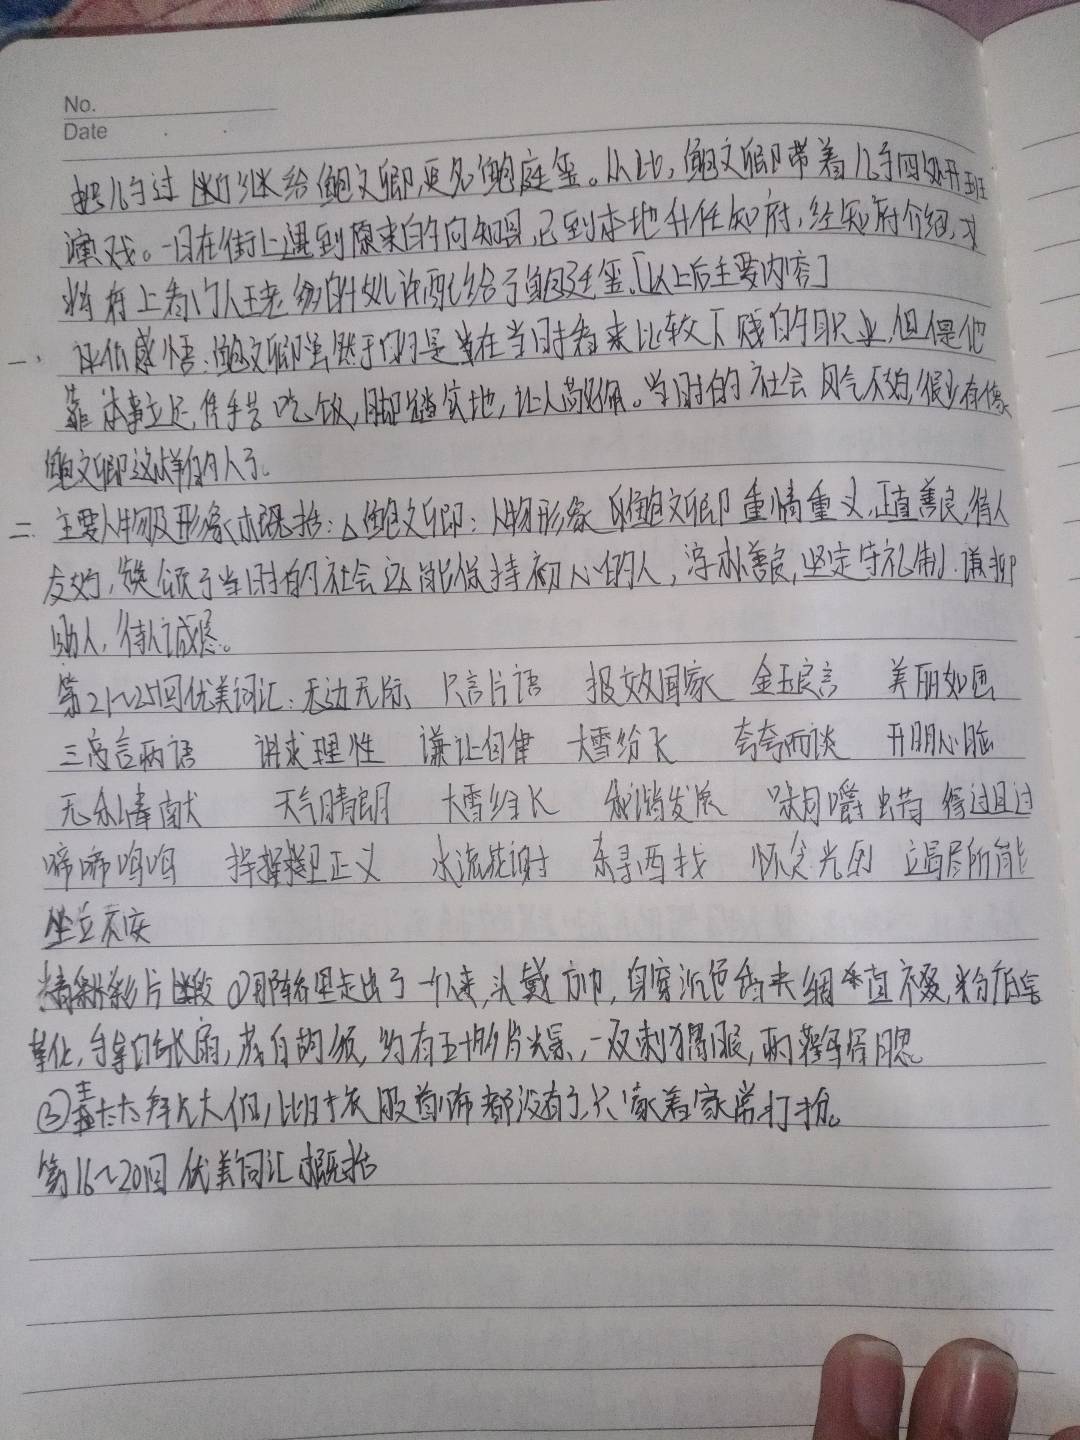 No.
Date
把儿子过继给鲍文卿更名鲍庭玺。从此,鲍文卿带着儿子四处开班
演戏。一日在街上遇到原来的向知县,已到本地升任知府,经知府介绍,
将府上看门人王老爹的女儿许配给了鲍廷玺。[以上后主要内容]
一、评价感悟:鲍文卿虽然干的是在当时看来比较下贱的职业,但是他
靠本事立足,凭手艺吃饭,脚踏实地,让人敬佩。当时的社会风气不好,很少有像
鲍文卿这样的人了。
二、主要人物及形象概括:△鲍文卿:人物形象 鲍文卿重情重义,正直善良,待人
友好,当时的社会还能保持初心的人,淳朴善良,坚定守礼制,谦卑
助人,待人诚恳。
第21~25回优美词汇:无边无际 只言片语 报效国家 金玉良言 美丽如画
三言两语 讲求理性 谦让自律 大雪纷飞 夸夸而谈 开朗心胸
天气晴朗 大雪纷飞 和谐发展 味同嚼蜡 得过且过
啼啼呜呜 捍卫正义 水流花谢 东寻西找 怀念光阴 竭尽所能
坐立不安
精彩片段 ①那轿里走出了一个人来,头戴方巾,身穿沉色夹绸直裰,粉底皂
靴,手拿白纸扇,花白胡须,约有五十多岁光景,一双刺猬眼,两个鹳骨腮。
②王太太拜见大人,比时衣服首饰都没有了,只穿着家常打扮。
第16~20回优美词汇概括